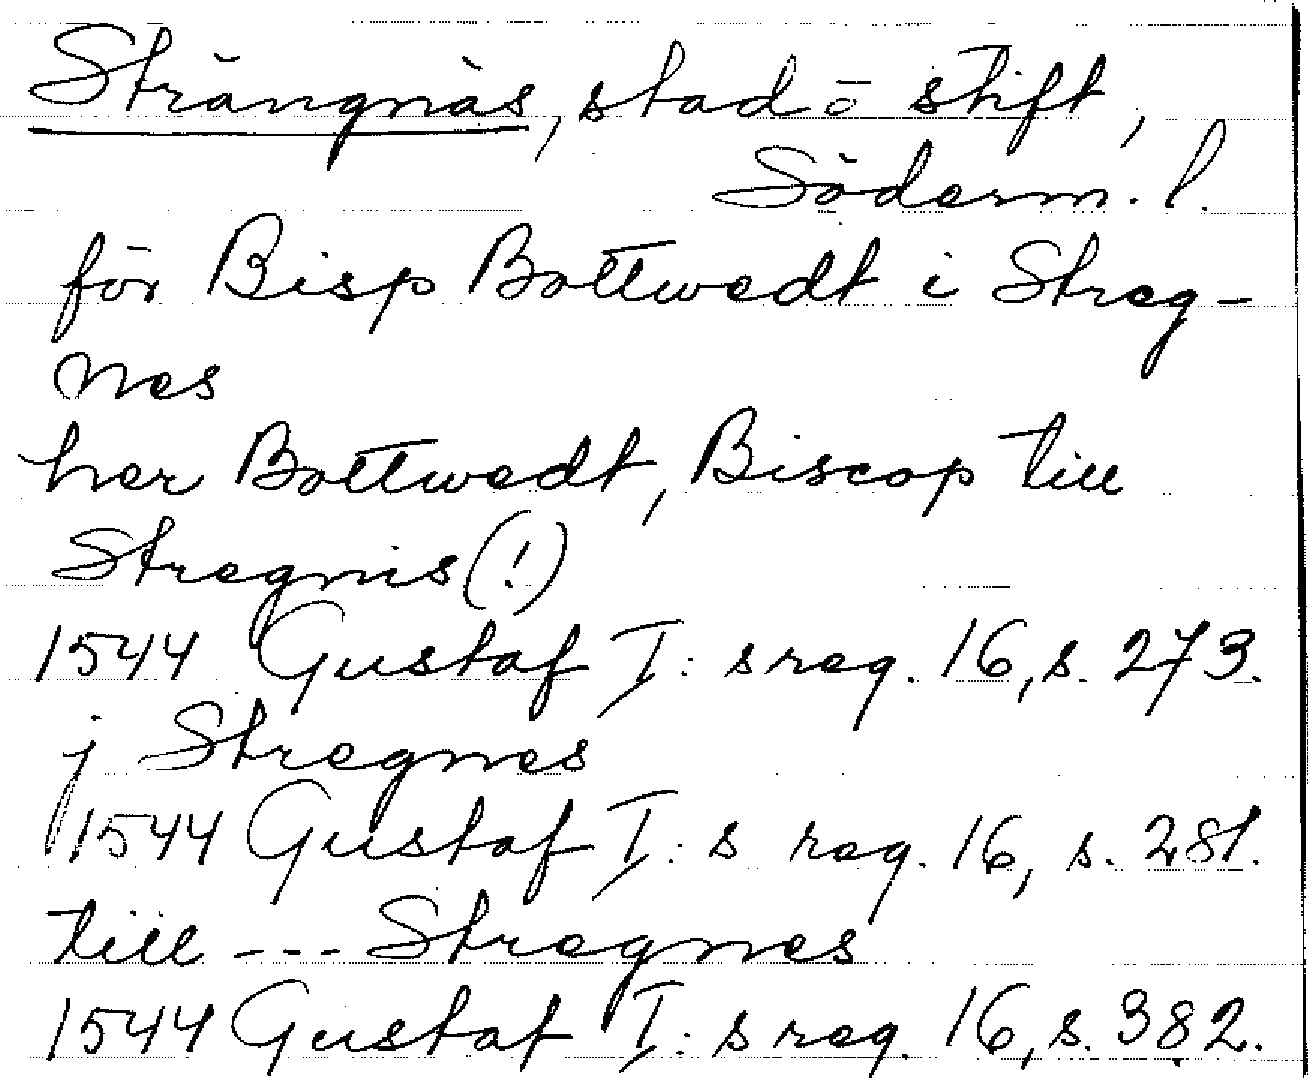 Strängnäs, stad o stift,
Söderm. l.
för Bisp Bottwedt i Streg-
nes
her Bottwedt, Biscop till
Stregnis (!)
1544 Gustaf I: s reg. 16, s. 273.
j Stregnes
1544 Gustaf I: s reg. 16, s. 281.
till --- Stregnes
1544 Gustaf I: s reg. 16, s. 382.